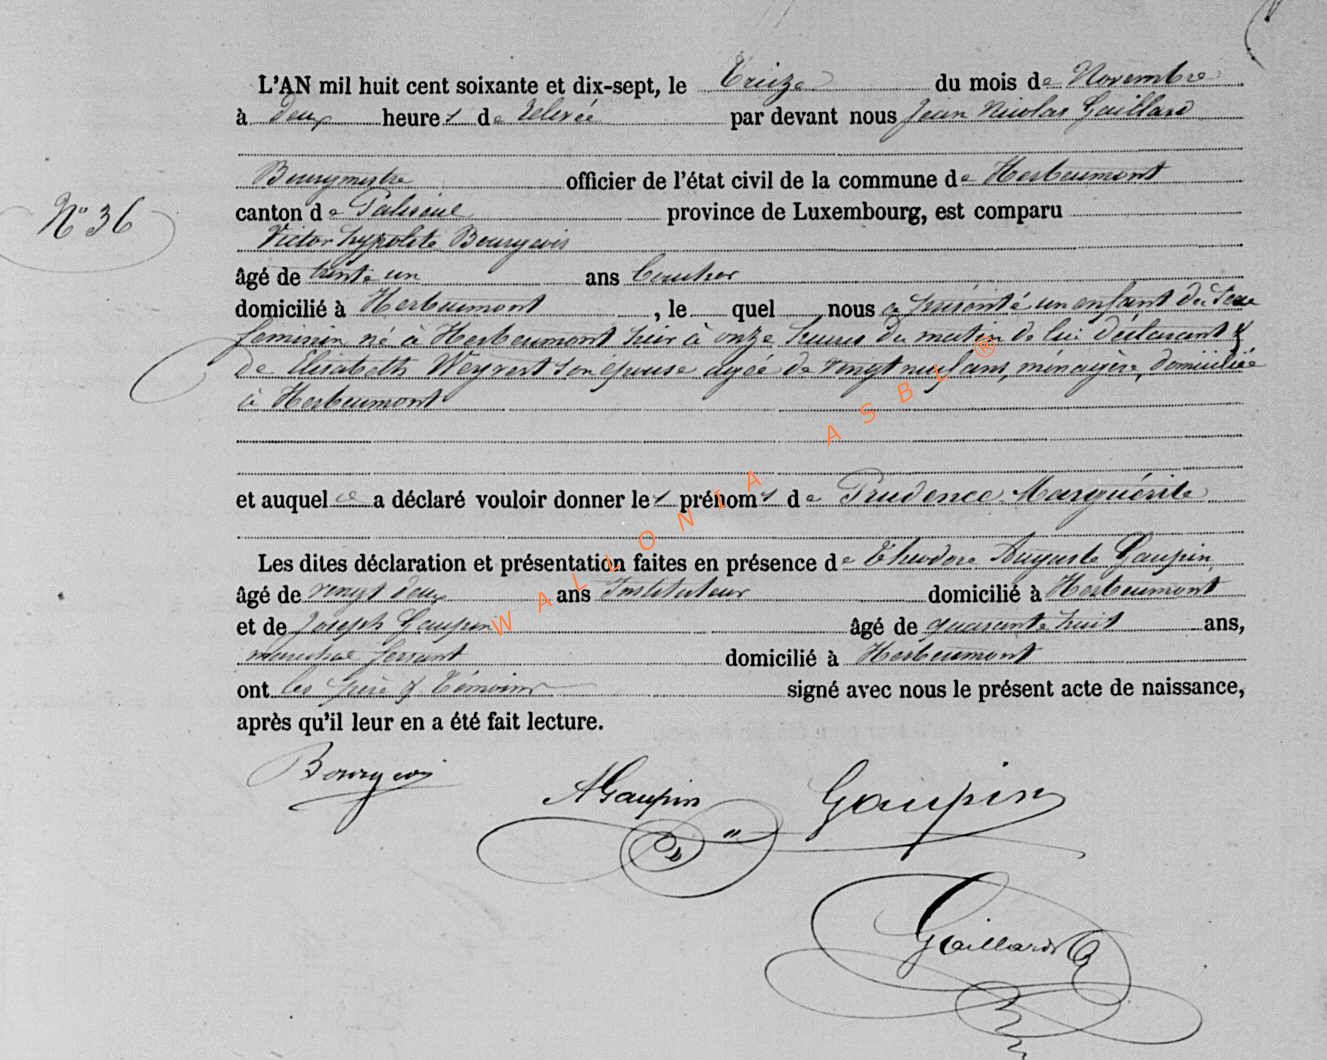 L'AN mil huit cent soixante et dix-sept, le Treize du mois de Novembre
à deux heures de relevée par devant nous Jean Nicolas Gaillard
Bourgmestre officier de l'état civil de la commune de Herbeumont
N° 36
canton de Paliseul province de Luxembourg, est comparu
Victor hypolite Bourgeois
âgé de trente un ans
domicilié à Herbeumont, le quel nous a présenté un enfant du sexe
feminin né à Herbeumont hier à onze heures du matin de lui déclarant &
de Elisabeth Weyrert son épouse agée de vingt neuf ans, ménagère, domiciliée
à Herbeumont
et auquel ce a déclaré vouloir donner les prénoms de Prudence Marguérite
Les dites déclaration et présentation faites en présence de Théodore Auguste Gaupin,
âgé de vingt deux ans Instituteur domicilié à Herbeumont
et de Joseph Gaupin âgé de quarante huit ans,
marechal ferrant domicilié à Herbeumont
ont les père & témoins signé avec nous le présent acte de naissance,
après qu'il leur en a été fait lecture.
Bourgeois
AGaupin
Gaupin
Gaillard
WALLONIA ASBL ®